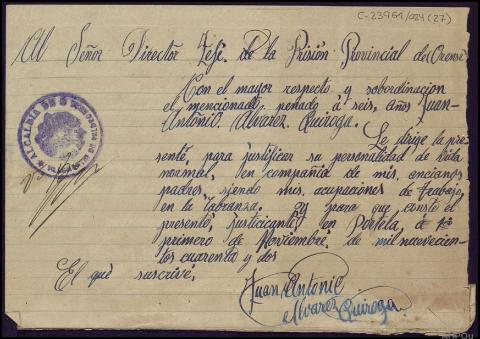 C-23961/024(27)
Al Señor Director Jefe. De la Prisión Provincial de Orense
Con el mayor respecto y sobordinacion
el mencionado, penado á seis, años Juan-
Antonio. Alvarez Quiroga.
Se dirige la pre-
senté, para justificar su personalidad de vida
normal, en compañia de mis, encianos
padres, siendo mis, acupaciones de trabajo,
en la labranza. Y para que consté el
presenté, justicianté, en Portela, a
primero de Noviembre, de mil novecien-
tos cuarenta y dos
El qué suscrivé,
Juan Antonio
Alvarez Quiroga.
ALCALDIA DE
AHPOu